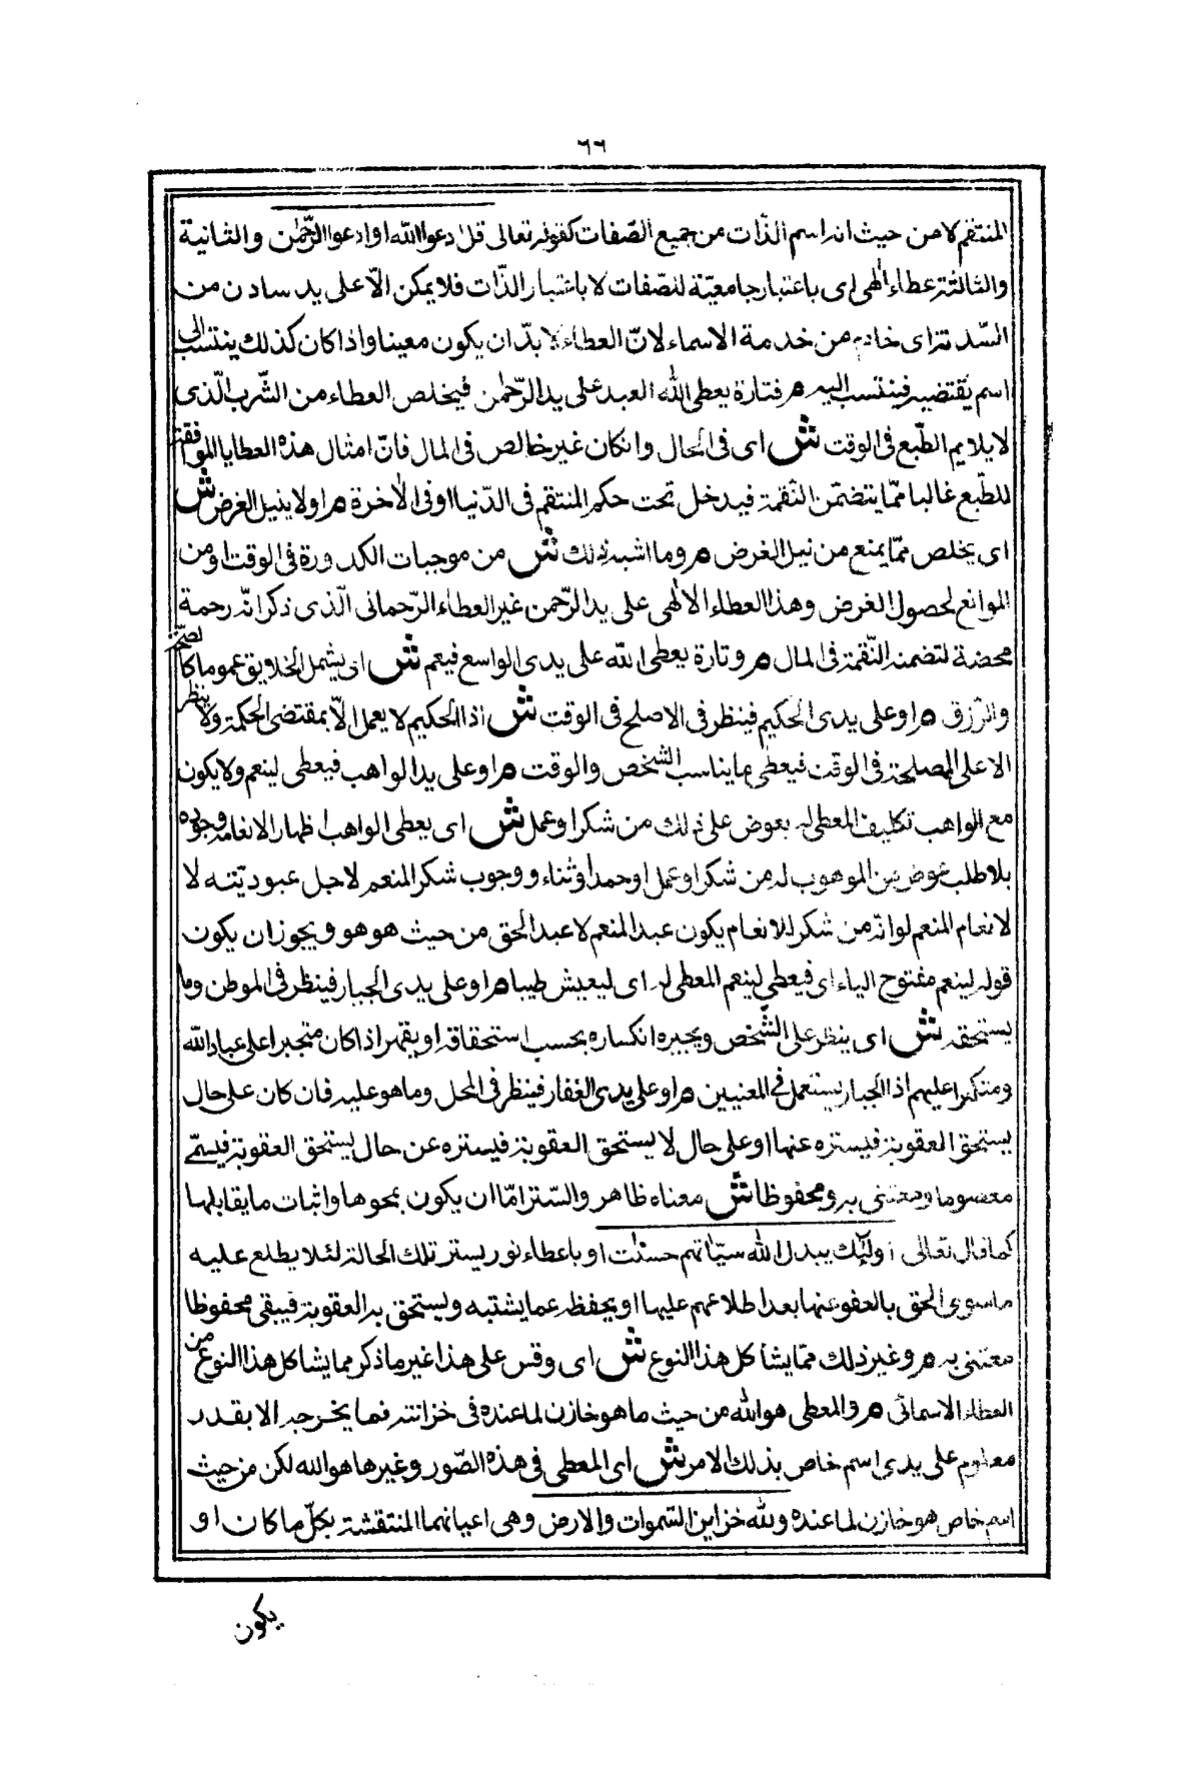 ٦٦
المنتقم لا من حيث انه اسم الذّات من جميع الصّفات كقوله تعالى قل ادعوا الله او ادعوا الرّحمٰن والثانية
والثالثة عطاء الٰهى اى باعتبار جامعيّة للصّفات لا باعتبار الذّات فلا يمكن الّا على يد سادن من
السّدنة اى خادم من خدمة الاسماء لانّ العطاء لا بدّ ان يكون معينا واذا كان كذلك ينتسب الى
اسم يقتضيه فينتسب اليه م فتارة يعطى الله العبد على يد الرّحمٰن فيخلص العطاء من الشّرب الّذى
لا يلايم الطّبع فى الوقت ش اى فى الحال وانكان غير خالص فى المال فانّ امثال هذه العطايا الموافقة
للطّبع غالبا ممّا يتضمّن النّقمة فيدخل تحت حكم المنتقم فى الدّنيا او فى الاٰخرة م او لا ينيل الغرض ش
اى يخلص ممّا يمنع من نيل الغرض م وما اشبه ذلك ش من موجبات الكدورة فى الوقت او من
الموانع لحصول الغرض وهذا العطاء الالٰهى على يد الرّحمن غير العطاء الرّحمانى الّذى ذكر انّه رحمة
محضة لتضمنه النّقمة فى المال م وتارة يعطى الله على يدى الواسع فيعم ش اى يشمل الخلايق عموما كالصّحّة
والرّزق م او على يدى الحكيم فينظر فى الاصلح فى الوقت ش اذ الحكيم لا يعمل الّا بمقتضى الحكمة ولا ينظر
الا على المصلحة فى الوقت فيعطى بما يناسب الشّخص والوقت م او على يد الواهب فيعطى لينعم ولا يكون
مع الواهب تكليف المعطى له بعوض على ذلك من شكر او عمل ش اى يعطى الواهب اظهارا لانعامه وجوده
بلا طلب عوض من الموهوب له من شكر او عمل او حمد او ثناء ووجوب شكر المنعم لاجل عبوديّته لا
لانعام المنعم لو انّه من شكر للانعام يكون عبد المنعم لا عبد الحق من حيث هو هو ويجوز ان يكون
قوله لينعم مفتوح الياء اى فيعطى لينعم المعطى له اى ليعيش طيبا م او على يدى الجبار فينظر فى الموطن وما
يستحقه ش اى ينظر على الشّخص ويجبره انكساره بحسب استحقاقه او يقهر اذا كان متجبرا على عباد الله
ومتكبرا عليهم اذ الجبار يستعمل فى المعنيين م او على يدى الغفار فينظر فى المحل وما هو عليه فان كان على حال
يستحق العقوبة فيستره عنها او على حال لا يستحق العقوبة فيستره عن حال يستحق العقوبة فيسمّى
معصوما ومعتنى به ومحفوظا ش معناه ظاهر والسّتر امّا ان يكون بمحوها واثبات ما يقابلها
كما قال تعالى اولئك يبدل الله سيّاتهم حسنات او باعطاء نور يستر تلك الحالة لئلا يطلع عليه
ما سوى الحق بالعفو عنها بعد اطلاعهم عليها او يحفظه عما يشتبه ويستحق به العقوبة فيبقى محفوظا
معتنى به م وغير ذلك ممّا يشاكل هذا النوع ش اى وقس على هذا غير ما ذكر مما يشاكل هذا النوع من
العطاء الاسمائى م والمعطى هو الله من حيث ما هو خازن لما عنده فى خزانته فما يخرجه الا بقدر
معلوم على يدى اسم خاص بذلك الامر ش اى المعطى فى هذه الصّور وغيرها هو الله لكن من حيث
اسم خاص هو خازن لما عنده ولله خزاين السّموات والارض وهى اعيانهما المنتقشة بكلّ ما كان او
يكون